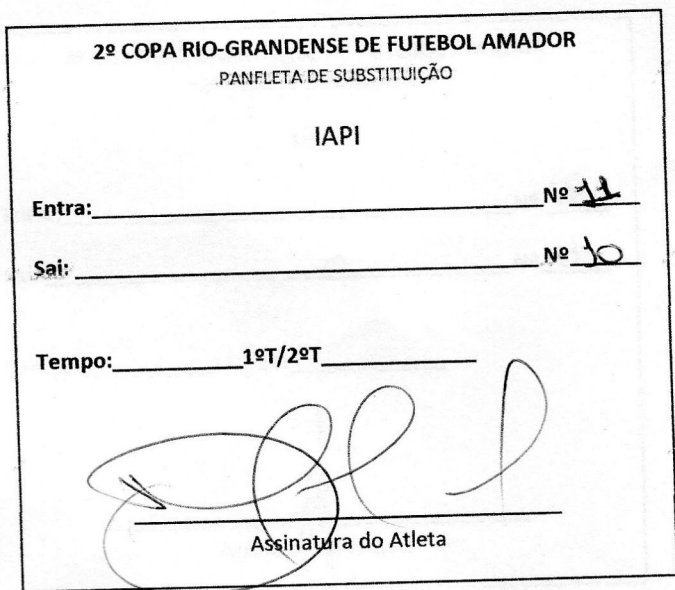 2º COPA RIO-GRANDENSE DE FUTEBOL AMADOR
PANFLETA DE SUBSTITUIÇÃO
IAPI
Entra: Nº 11
Sai: Nº 10
Tempo: 1ºT/2ºT
Assinatura do Atleta